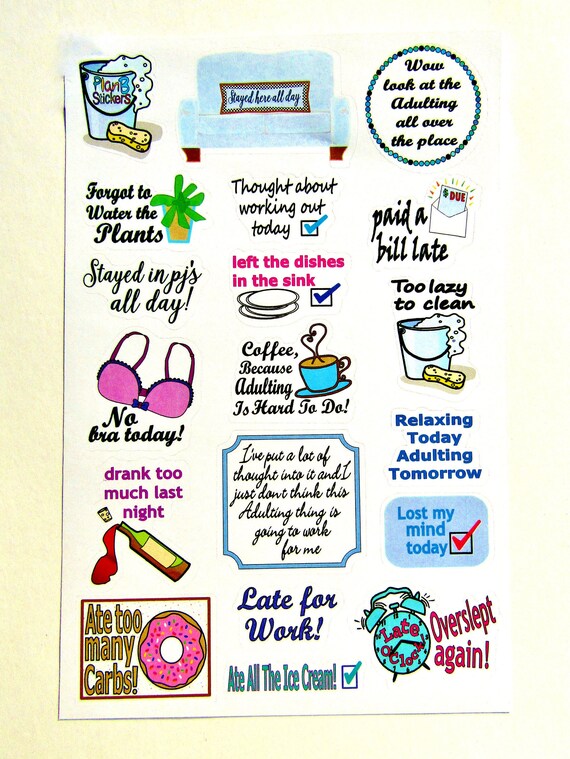 PlanB
Stickers
Stayed here all day
Wow
look at the
Adulting
all over
the place
Forgot to
Water the
Plants
Thought about
working out
today
$ DUE
paid a
bill late
Stayed in pj's
all day!
left the dishes
in the sink
Too lazy
to clean
No
bra today!
Coffee,
Because
Adulting
Is Hard To Do!
Relaxing
Today
Adulting
Tomorrow
drank too
much last
night
I've put a lot of
thought into it and I
just don't think this
Adulting thing is
going to work
for me
Lost my
mind
today
Ate too
many
Carbs!
Late for
Work!
Ate All The Ice Cream!
Late
O'Clock
Overslept
again!